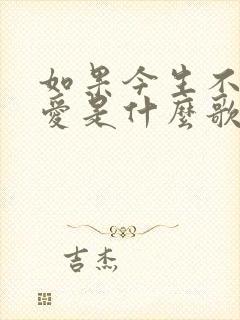 如果今生不
爱是什麼歌
吉杰